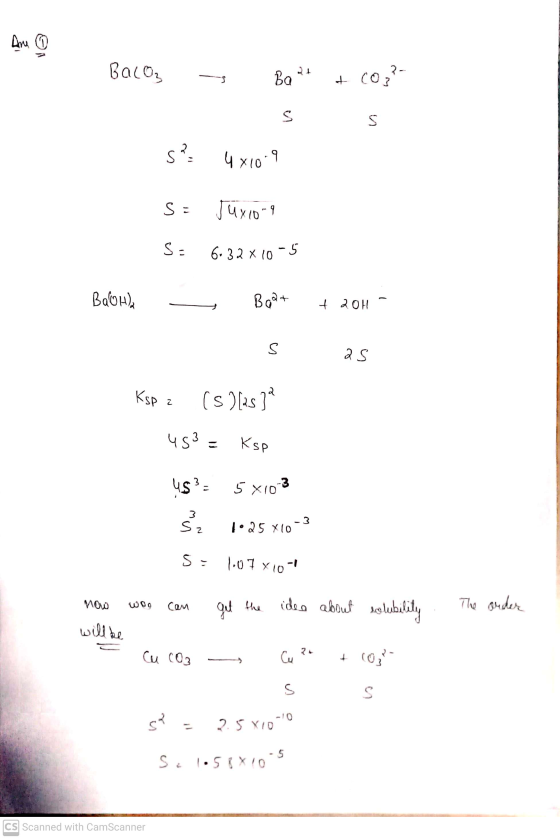 Ans ①
BaCO3 → Ba2+ + CO3 2-
S S
S2 = 4 x10-9
S = √4x10-9
S = 6.32 x 10-5
Ba(OH)2 → Ba2+ + 2OH-
S 2S
Ksp = (S)[2S]2
4S3 = Ksp
4S3 = 5 x10-3
S3 = 1.25 x10-3
S = 1.07 x10-1
now woo can get the idea about solubility. The order
will be
CuCO3 → Cu2+ + CO3 2-
S S
S2 = 2.5 x10-10
S = 1.58 x10-5
CS Scanned with CamScanner